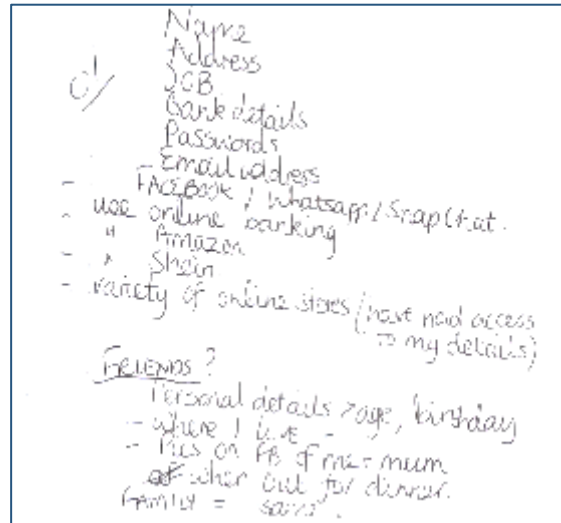 Name
Address
DOB
Bank details
Passwords
Email address
- FACEBOOK / Whatsapp / Snapchat.
- use online banking
- " Amazon
- " Shein
- variety of online stores (have had access
to my details)
FRIENDS?
Personal details > age, birthday
- where I live -
- Pics on FB of me + mum
when out for dinner.
FAMILY = same.